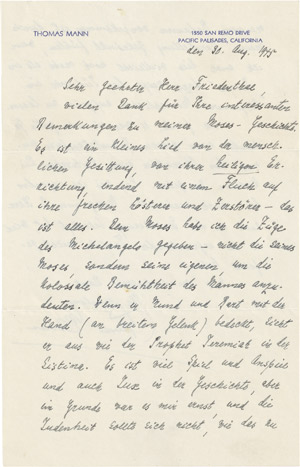 THOMAS MANN
1550 SAN REMO DRIVE
PACIFIC PALISADES, CALIFORNIA
den 30. Aug. 1945
Sehr geehrter Herr Friedenthal,
vielen Dank für Ihre interessanten
Bemerkungen zu meiner Moses-Geschichte.
Es ist ein kleines Lied von der mensch-
lichen Gesittung, von ihrer heiligen Er-
richtung, endend mit einem Fluch auf
ihre frechen Lästerer und Zerstörer – das
ist alles. Dem Moses habe ich die Züge
des Michelangelo gegeben – nicht die seines
Moses, sondern seine eigenen, um die
kolossale Bemühtheit des Mannes anzu-
deuten. Wenn er Mund und Bart mit der
Hand (an breitem Gelenk) bedeckt, sieht
er aus wie der Prophet Jeremiah in der
Sistina. Es ist viel Spiel und Anspiel
und auch Jux in der Geschichte, aber
im Grunde war es mir ernst und die
Judenheit sollte sich nicht, wie das zu